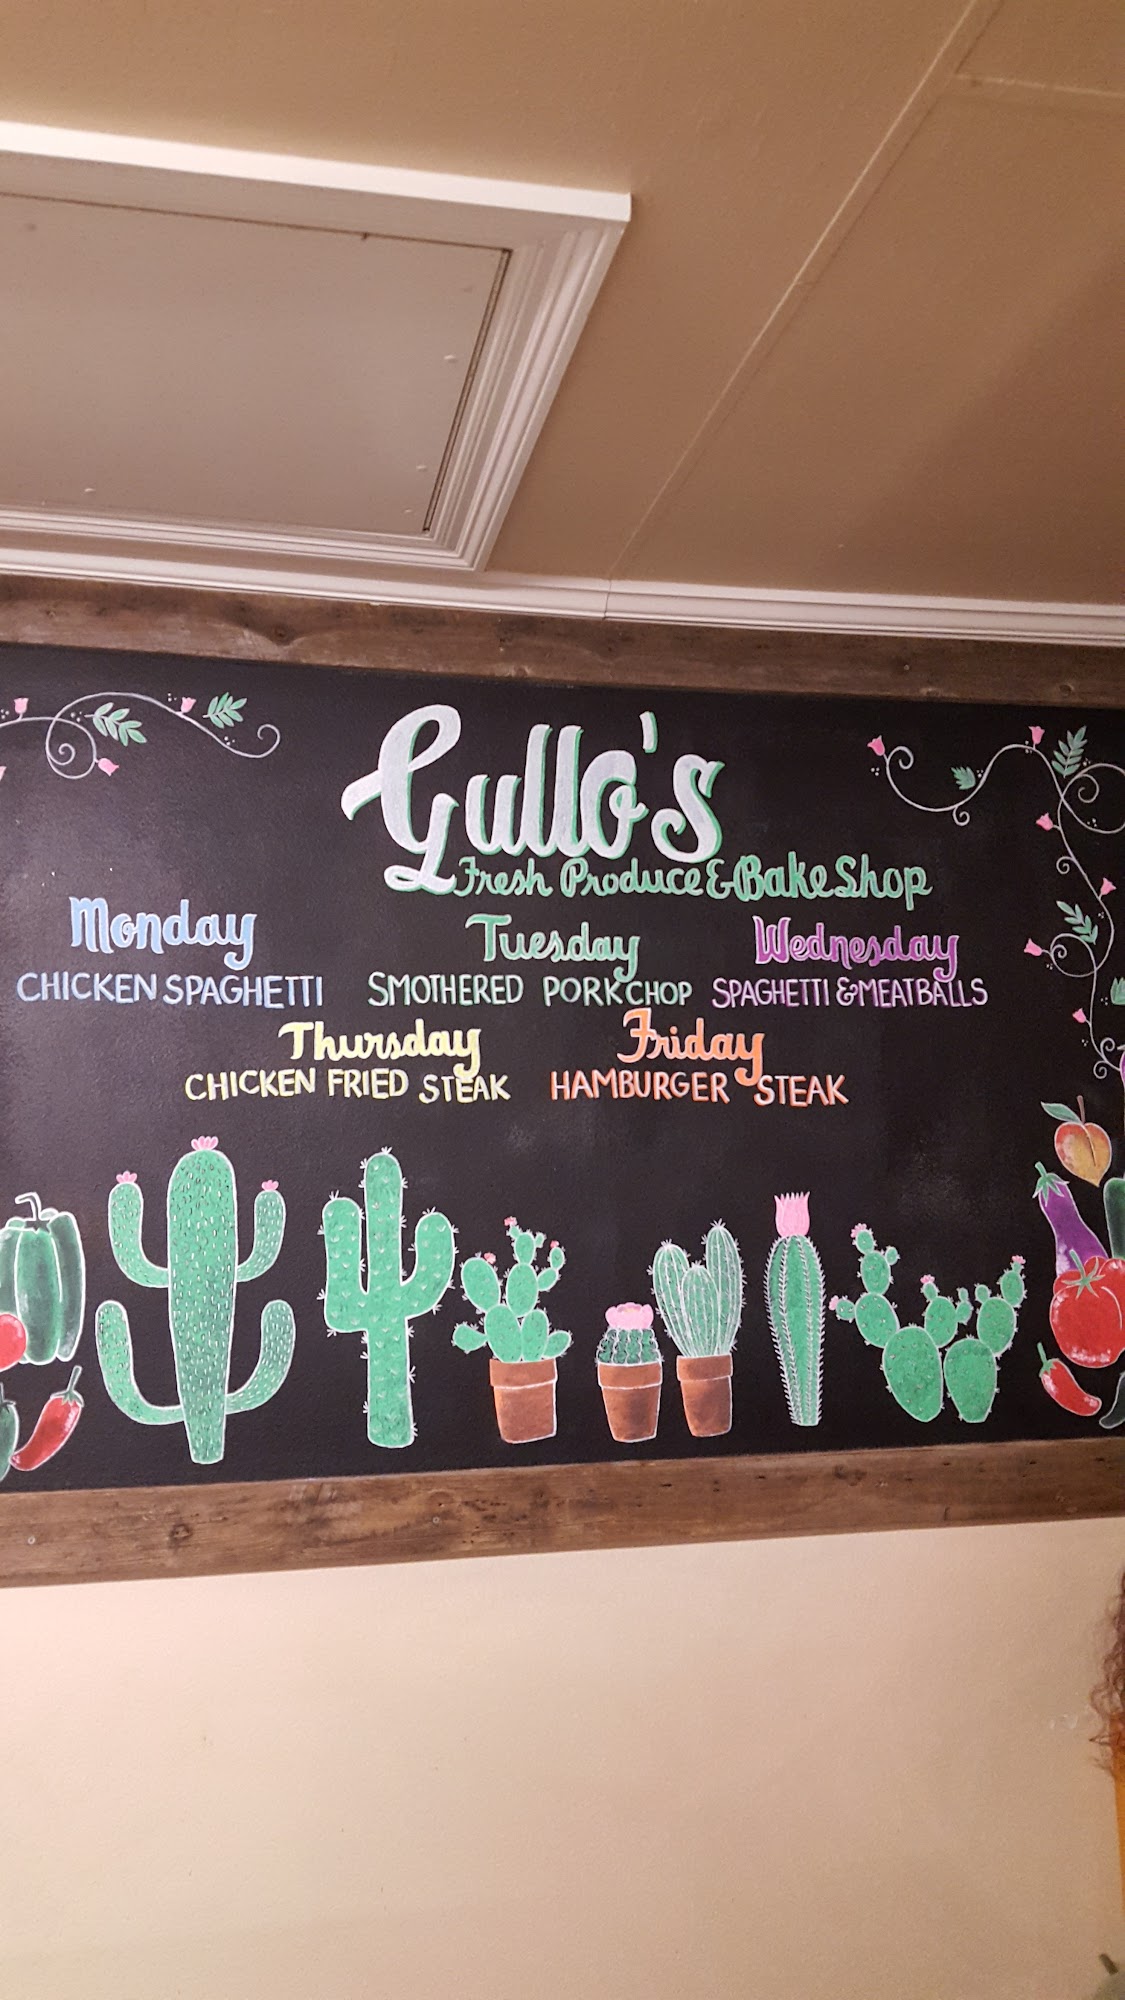 Gullo's
Fresh Produce & Bake Shop
Monday Tuesday Wednesday
CHICKEN SPAGHETTI SMOTHERED PORK CHOP SPAGHETTI & MEATBALLS
Thursday Friday
CHICKEN FRIED STEAK HAMBURGER STEAK